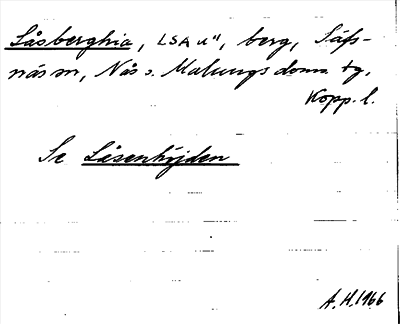 Låsberghia, LSA u", berg, Säfs-
näs sn, Nås o. Malungs doms. tg,
Kopp. l.
Se Låsenhöjden
A. H. 1966